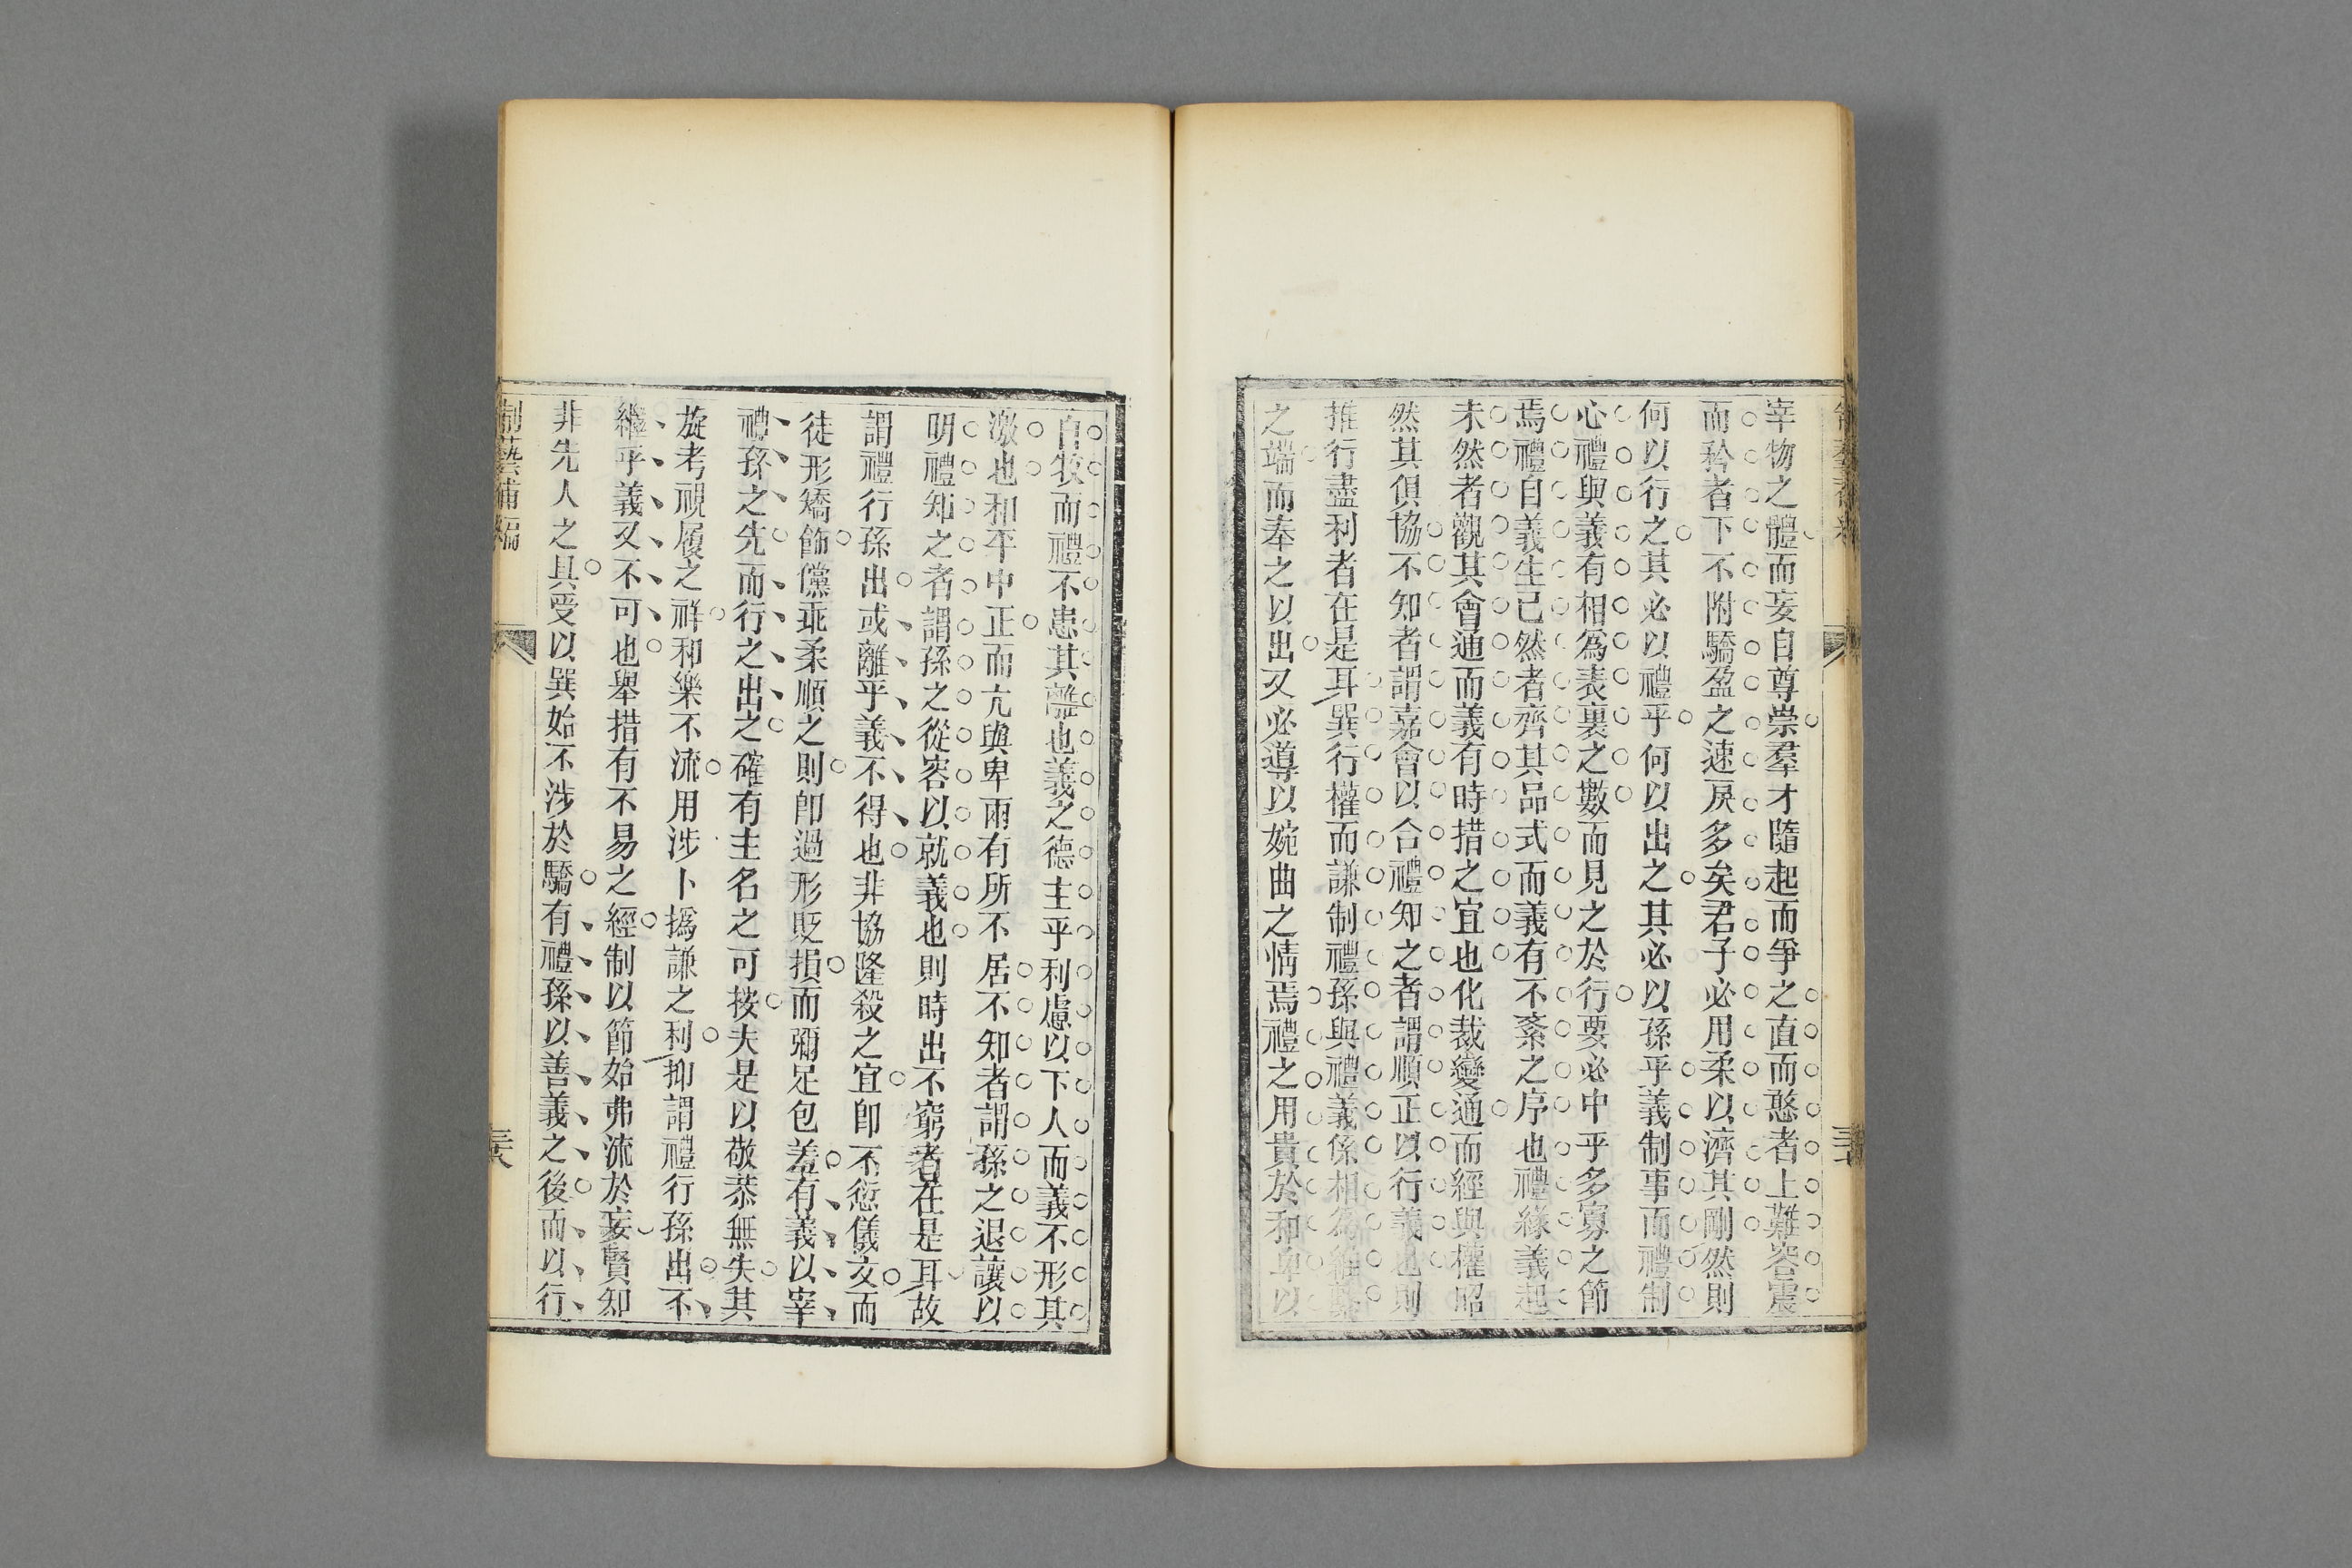 宰物之體而妄自尊崇羣才隨起而爭之直而憨者上難容震
而矜者下不附驕盈之速戾多矣君子必用柔以濟其剛然則
何以行之其必以禮乎何以出之其必以孫乎義制事而禮制
心禮與義有相爲表裏之數而見之於行要必中乎多寡之節
焉禮自義生已然者齊其品式而義有不紊之序也禮緣義起
未然者觀其會通而義有時措之宜也化裁變通而經與權昭
然其俱協不知者謂嘉會以合禮知之者謂順正以行義也則
推行盡利者在是耳巽行權而謙制禮孫與禮義係相爲維繫
之端而奉之以出又必導以婉曲之情焉禮之用貴於和卑以
自牧而禮不患其離也義之德主乎利慮以下人而義不形其
激也和平中正而亢與卑兩有所不居不知者謂孫之退讓以
明禮知之者謂孫之從容以就義也則時出不窮者在是耳故
謂禮行孫出或離乎義不得也非協隆殺之宜卽不愆儀文而
徒形矯飾儻乖柔順之則卽過形貶損而彌足包羞有義以宰
禮孫之先而行之出之確有主名之可按夫是以敬恭無失其
旋考視履之祥和樂不流用涉卜撝謙之利抑謂禮行孫出不
繼乎義又不可也舉措有不易之經制以節始弗流於妄賢知
非先人之具受以巽始不涉於驕有禮孫以善義之後而以行
制藝補編
三十八